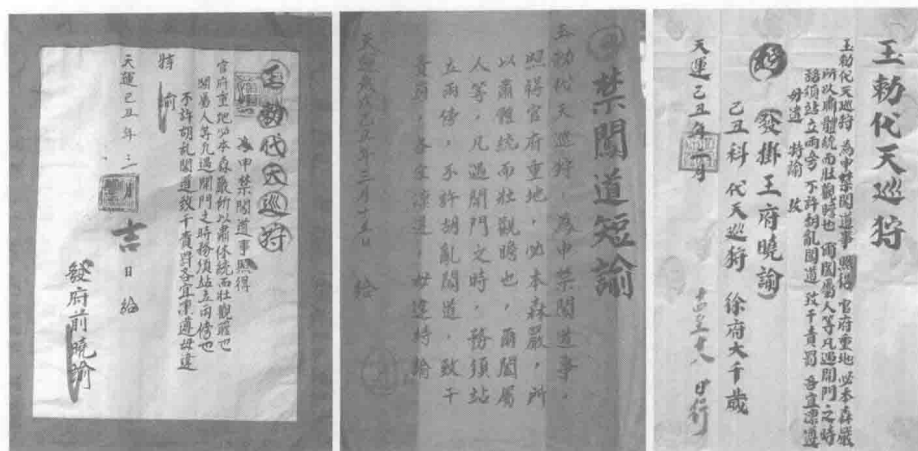 玉勅代天巡狩
為申禁闖道事照得
官府重地必本森嚴所以肅体統而壯觀瞻也
閤屬人等凡遇開門之時務須站立兩傍也
不許胡乱闖道致干責罰各宜凜遵毋違
特諭
天運己丑年三 吉日給
發府前曉諭
禁闖道短諭
玉勅代天巡狩，為申禁闖道事，
照得官府重地，必本森嚴，所
以肅體統而壯觀瞻也，爾閤屬
人等，凡遇開門之時，務須站
立兩傍，不許胡亂闖道，致干
責罰，各宜凜遵，毋違特諭
天運歲次己丑年三月十五日 給
玉勅代天巡狩
玉勅代天巡狩 為申禁闖道事 照得 官府重地 必本森嚴
所以肅體統而壯觀瞻也 爾閤屬人等凡遇開門之時
務須站立兩旁 不許胡乱闖道 致干責罰 各宜凜遵
毋違 特諭
發掛王府曉諭
己丑科 代天巡狩 徐府大千歲
天運己丑年 月 日行